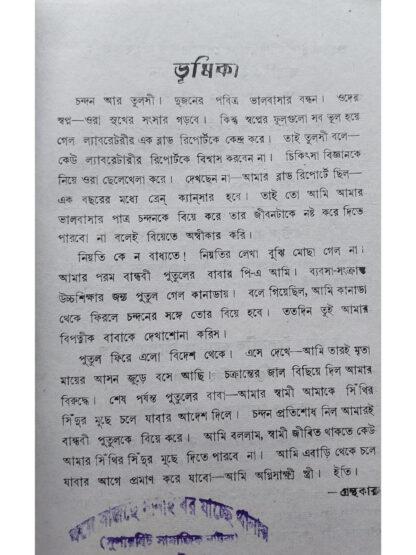 ভূমিকা
চন্দন আর তুলসী। দুজনের পবিত্র ভালবাসার বন্ধন। ওদের
স্বপ্ন—ওরা সুখের সংসার গড়বে। কিন্তু স্বপ্নের ফুলগুলো সব ভুল হয়ে
গেল ল্যাবরেটরীর এক ব্লাড রিপোর্টকে কেন্দ্র করে। তাই তুলসী বলে—
কেউ ল্যাবরেটারীর রিপোর্টকে বিশ্বাস করবেন না। চিকিৎসা বিজ্ঞানকে
নিয়ে ওরা ছেলেখেলা করে। দেখছেন না—আমার ব্লাড রিপোর্টে ছিল—
এক বছরের মধ্যে ব্রেন্ ক্যান্সার হবে। তাই তো আমি আমার
ভালবাসার পাত্র চন্দনকে বিয়ে করে তার জীবনটাকে নষ্ট করে দিতে
পারবো না বলেই বিয়েতে অস্বীকার করি।
নিয়তি কে ন বাধ্যতে! নিয়তির লেখা বুঝি মোছা গেল না।
আমার পরম বান্ধবী পুতুলের বাবার পি-এ আমি। ব্যবসা-সংক্রান্ত
উচ্চশিক্ষার জন্য পুতুল গেল কানাডায়। বলে গিয়েছিল, আমি কানাডা
থেকে ফিরলে চন্দনের সঙ্গে তোর বিয়ে হবে। ততদিন তুই আমার
বিপত্নীক বাবাকে দেখাশোনা করিস।
পুতুল ফিরে এলো বিদেশ থেকে। এসে দেখে—আমি তারই মৃতা
মায়ের আসন জুড়ে বসে আছি। চক্রান্তের জাল বিছিয়ে দিল আমার
বিরুদ্ধে। শেষ পর্যন্ত পুতুলের বাবা—আমার স্বামী আমাকে সিঁথির
সিঁদুর মুছে চলে যাবার আদেশ দিলে। চন্দন প্রতিশোধ নিল আমারই
বান্ধবী পুতুলকে বিয়ে করে। আমি বললাম, স্বামী জীবিত থাকতে কেউ
আমার সিঁথির সিঁদুর মুছে দিতে পারবে না। আমি এবাড়ি থেকে চলে
যাবার আগে প্রমাণ করে যাবো—আমি অগ্নিসাক্ষী স্ত্রী। ইতি।
—গ্রন্থকার
(সুপারহিট সামাজিক নাটক)